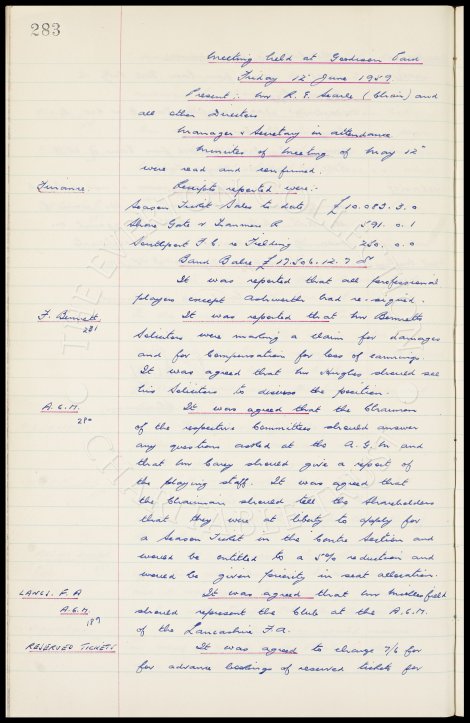 283
Meeting held at Goodison Park
Friday 12th June 1959.
Present; Mr R. E. Searle (Chair) and
all other Directors
Manager & Secretary in attendance
Minutes of Meeting of May 12th
were read and confirmed.
Finance. Receipts reported were:-
Season Ticket Sales to date £10.083.3.0
Share Gate v Tranmere R 591.0.1
Southport F.C. re Fielding 250.0.0
Bank Balce £17.506.12.7
It was reported that all professional
players except Ashworth had re-signed.
F. Bennett. It was reported that Mr Bennetts
281
Solicitors were making a claim for damages
and for Compensation for loss of earnings.
It was agreed that Mr Hughes should see
his Solicitors to discuss the position.
A.G.M. It was agreed that the Chairmen
280
of the respective Committees should answer
any questions asked at the A.G.M and
that Mr Carey should give a report of
the playing staff. It was agreed that
the Chairman should tell the Shareholders
that they were at liberty to apply for
a Season Ticket in the Centre Section and
would be entitled to a 5% reduction and
would be given priority in seat allocation.
LANCS. F.A It was agreed that Mr Micklesfield
A.G.M. should represent the Club at the A.G.M.
189
of the Lancashire F.A.
RESERVED TICKETS It was agreed to charge 7/6 for
for advance bookings of reserved tickets for
THE EVERTON COLLECTION
CHARITABLE TRUST